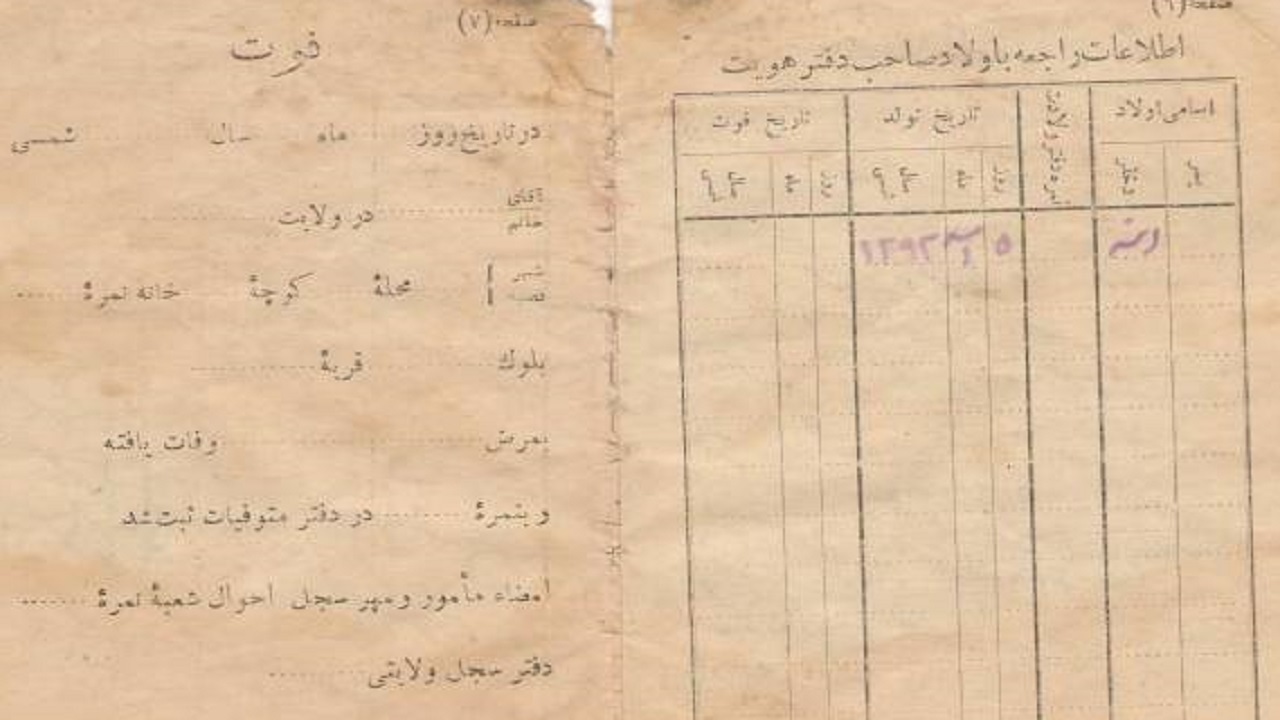 صفحه (٦)
اطلاعات راجعه باولاد صاحب دفتر هویت
اسامی اولاد
نمره دفتر ولادت
تاریخ تولد
تاریخ فوت
پسر
دختر
روز
ماه
سال شمسی
روز
ماه
سال شمسی
۵
۱۲۹۲
صفحه (۷)
فوت
در تاریخ روز ماه سال شمسی
آقای
خانم
در ولایت
شهر
قصبه
محلهٔ کوچهٔ خانه نمرهٔ
بلوك قریهٔ
بمرض وفات یافته
و بنمرهٔ در دفتر متوفیات ثبت شد
امضاء مأمور و مهر سجل احوال شعبهٔ نمرهٔ
دفتر سجل ولایتی